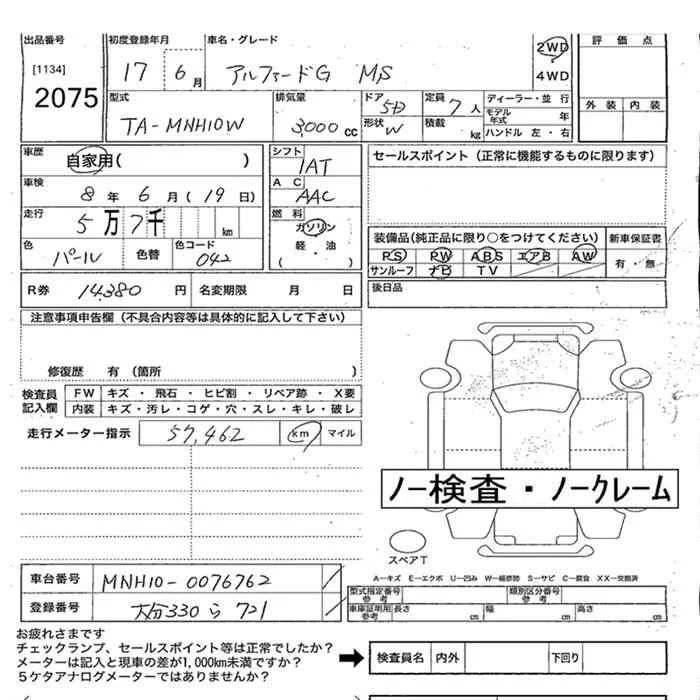 出品番号 初度登録年月 車名・グレード 評価点
[1134] 17 6月 アルファードG MS 2WD
2075 4WD
型式 排気量 ドア 5D 定員 7人 ディーラー・並行 外装 内装
TA-MNH10W 3,000cc 形状 W 積載 kg モデル年式 年
ハンドル 左・右
車歴 自家用( ) シフト セールスポイント(正常に機能するものに限ります)
IAT
車検 8年6月(19日) AC
AAC
走行 5万7千 km 燃料
ガソリン 装備品(純正品に限り○をつけてください) 新車保証書
色 パール 色替 色コード 042 軽・油 PS PW ABS エアB AW 有・無
( ) サンルーフ ナビ TV
R券 14,380円 名変期限 月 日 後日品
注意事項申告欄(不具合内容等は具体的に記入して下さい)
修復歴 有 (箇所 )
検査員記入欄 FW キズ・飛石・ヒビ割・リペア跡・X要
内装 キズ・汚レ・コゲ・穴・スレ・キレ・破レ
走行メーター指示 57,462 km マイル
ノー検査・ノークレーム
スペアT
A―キズ E―エクボ U―凹み W―補修跡 S―サビ C―腐食 XX―交換済
車台番号 MNH10-0076762 型式指定番号 参考 類別区分番号 参考
登録番号 大分330ら721 車庫証明用 参考 長さ cm 幅 cm 高さ cm
お疲れさまです
チェックランプ、セールスポイント等は正常でしたか?
メーターは記入と現車の差が1,000km未満ですか?
5ケタアナログメーターではありませんか?
検査員名 内外 下回り